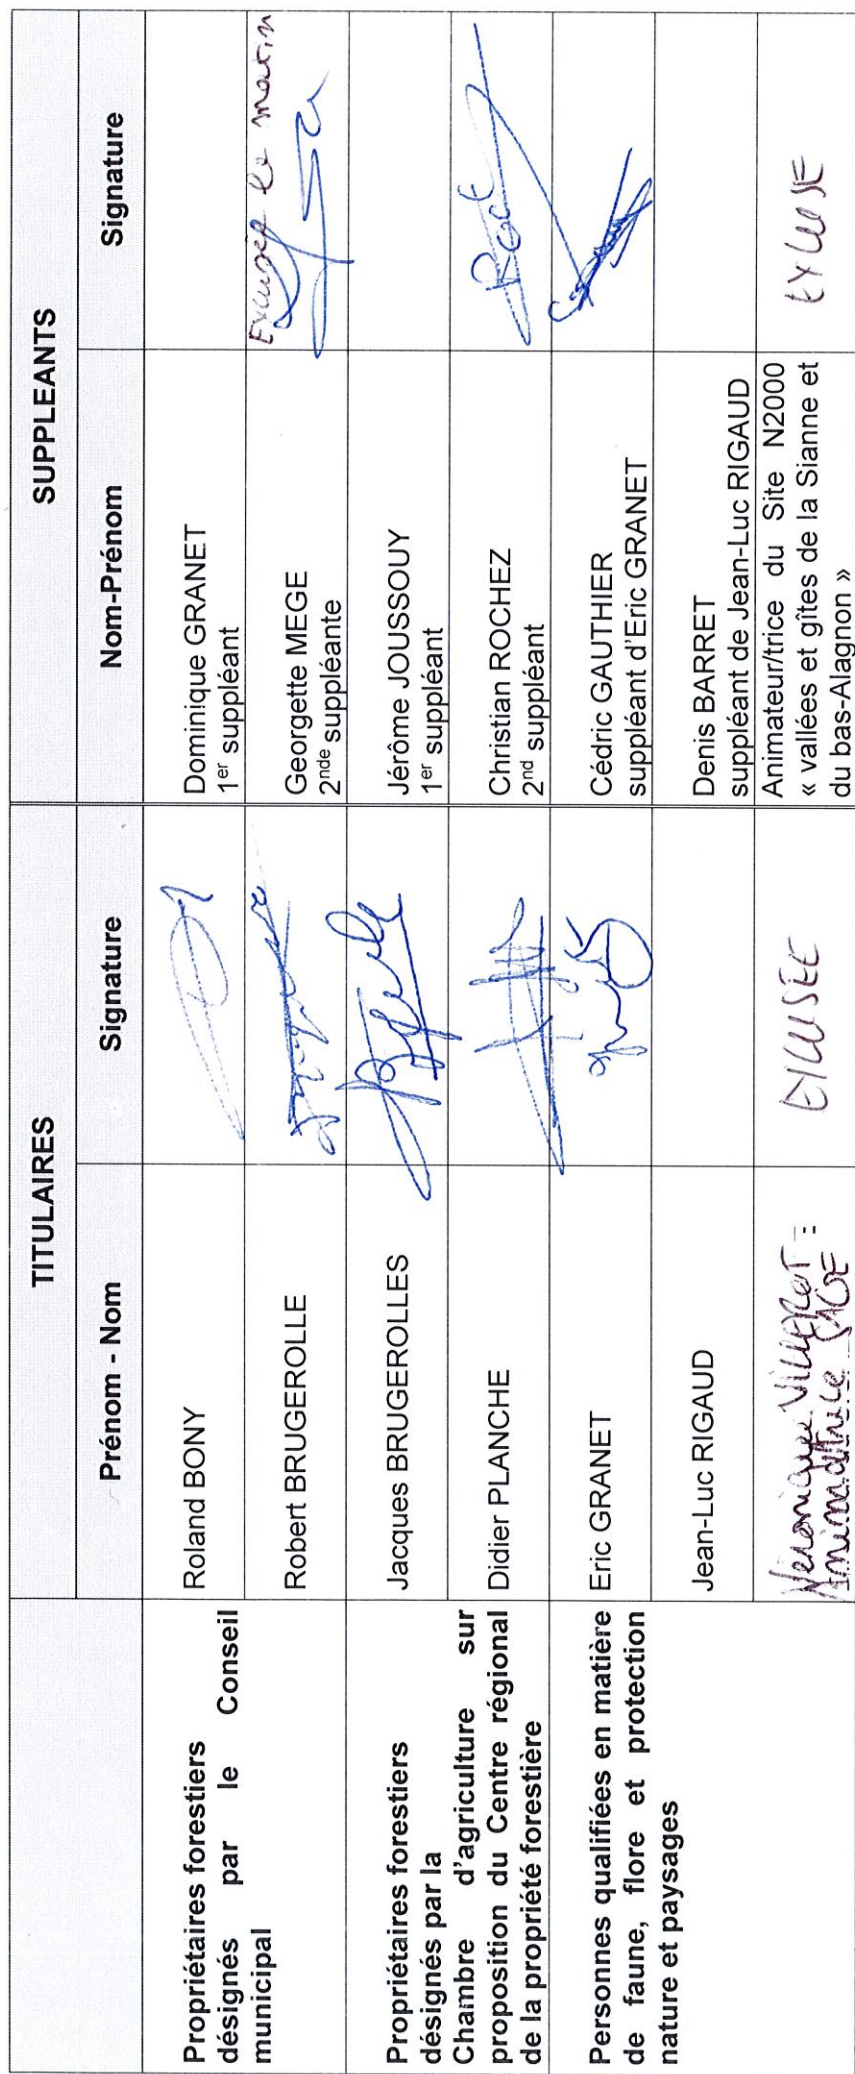 TITULAIRES
SUPPLEANTS
Prénom - Nom
Signature
Nom-Prénom
Signature
Propriétaires forestiers
désignés par le Conseil
municipal
Roland BONY
Dominique GRANET
1er suppléant
Robert BRUGEROLLE
Georgette MEGE
2nde suppléante
Excusée le matin
Propriétaires forestiers
désignés par la
Chambre d'agriculture sur
proposition du Centre régional
de la propriété forestière
Jacques BRUGEROLLES
Jérôme JOUSSOUY
1er suppléant
Didier PLANCHE
Christian ROCHEZ
2nd suppléant
Personnes qualifiées en matière
de faune, flore et protection
nature et paysages
Eric GRANET
Cédric GAUTHIER
suppléant d'Eric GRANET
Jean-Luc RIGAUD
Denis BARRET
suppléant de Jean-Luc RIGAUD
Véronique
Animatrice SAGE
EXCUSEE
Animateur/trice du Site N2000
« vallées et gîtes de la Sianne et
du bas-Alagnon »
EXCUSE